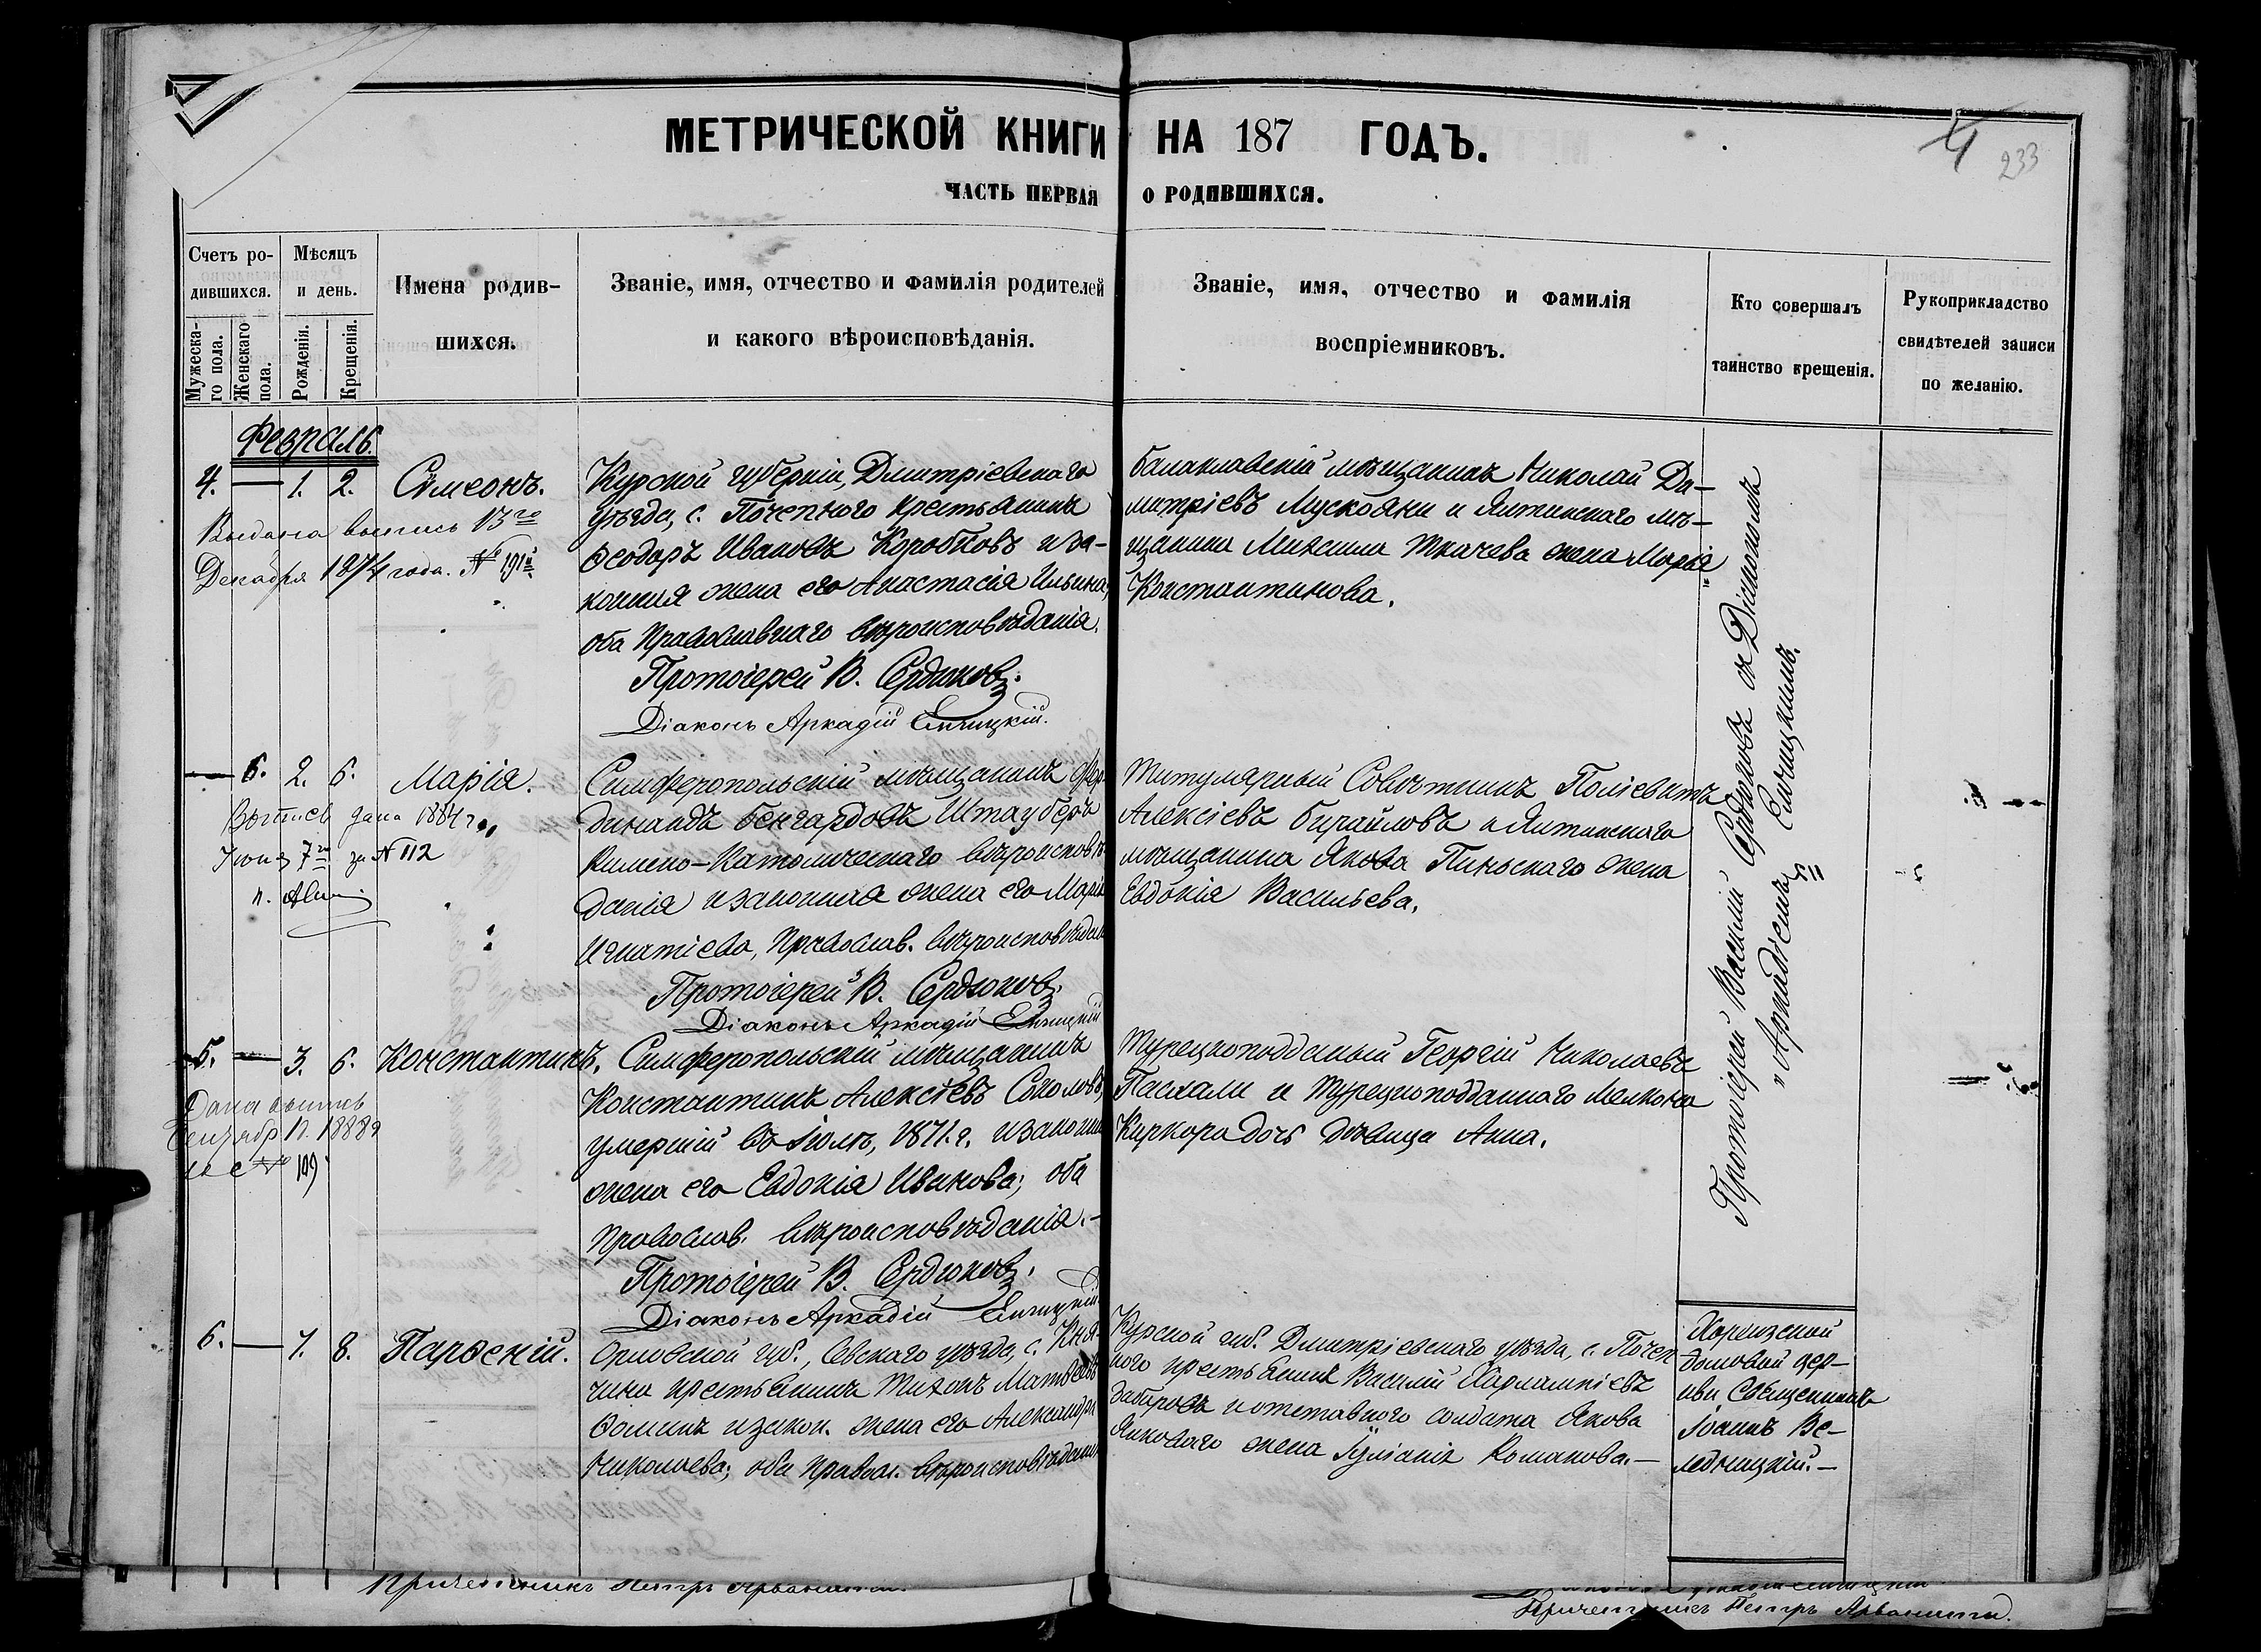 МЕТРИЧЕСКОЙ КНИГИ НА 187 ГОДЪ.
4
233
ЧАСТЬ ПЕРВАЯ О РОДИВШИХСЯ.
Счетъ ро-
дившихся.
Мужеска-
го пола.
Женскаго
пола.
Мѣсяцъ
и день.
Рожденія.
Крещенія.
Имена родив-
шихся.
Званіе, имя, отчество и фамилія родителей
и какого вѣроисповѣданія.
Званіе, имя, отчество и фамилія
воспріемниковъ.
Кто совершалъ
таинство крещенія.
Рукоприкладство
свидѣтелей записи
по желанію.
Февраль.
4. — 1. 2. Симеонъ.
Выдана выпись 13го
Декабря 1874 года. № 191й
Курской губерніи, Дмитріевскаго
уѣзда, с. Почепного крестьянинъ
Ѳеодоръ Ивановъ Коробковъ и за-
конная жена его Анастасія Ильина,
оба Православнаго вѣроисповѣданія.
Протоіерей В. Сердюковъ.
Діаконъ Аркадій
Балаклавскій мѣщанинъ Николай Ди-
митріевъ Мускояни и Ялтинскаго мѣ-
щанина Михаила Ткачева жена Марія
Константинова.
Протоіерей Василій Сердюковъ съ Діакономъ
Аркадіемъ
— 6. 2. 6. Марія.
Выпись дана 1884 г.
Іюня 7го за № 112
Симферопольскій мѣщанинъ Фер-
динандъ Бенгардовъ Штауберъ
Римско-Католическаго вѣроисповѣ-
данія и законная жена его Марія
Игнатіева, Православ. вѣроисповѣдан
Протоіерей В. Сердюковъ.
Діаконъ Аркадій
Титулярный Совѣтникъ Поліевктъ
Алексіевъ Бурайловъ и Ялтинскаго
мѣщанина Якова Пиньскаго жена
Евдокія Васильева.
5. — 3. 6. Константинъ.
Дана выпись
1888г
№ 109
Симферопольскій мѣщанинъ
Константинъ Алексіевъ Соколовъ,
умершій въ Іюлѣ, 1871. г. и законна
жена его Евдокія Иванова; оба
Православ. вѣроисповѣданія.—
Протоіерей В. Сердюковъ.
Діаконъ Аркадій
Турецкоподданый Георгій Николаевъ
Пасхали и Турецкоподданнаго Мелкона
Киркора дочь Дѣвица Анна.
6. — 7. 8. Парѳеній.
Орловской губ., Севскаго уѣзда, с. Кня-
гини крестьянинъ Тихонъ Матвѣевъ
Ѳоминъ и закон. жена его Александра
Николаева; оба Правосл. вѣроисповѣданія
Курской губ. Дмитріевскаго уѣзда, с. Почеп
ного крестьянинъ Василій Харлампіевъ
и отставного солдата Якова
жена Іуліанія Романова.—
домовой цер-
кви Священникъ
Іоаннъ Ве-
Причетникъ Петръ
Причетникъ Петръ